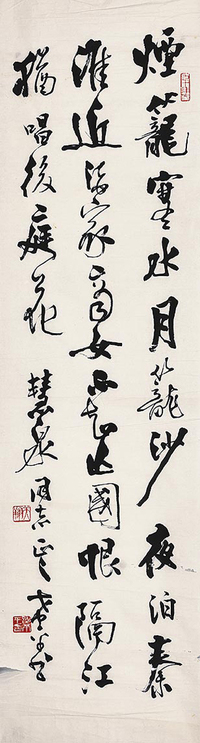 煙籠寒水月籠沙夜泊秦
淮近酒家商女不知亡國恨隔江
猶唱後庭花 慧泉同志正